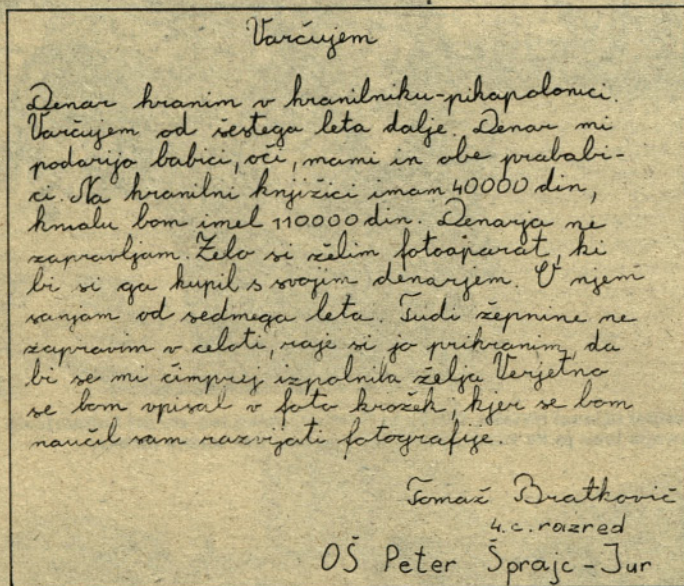 Varčujem
Denar hranim v hranilniku-pikapolonici.
Varčujem od šestega leta dalje. Denar mi
podarijo babici, oči, mami in obe prababi-
ci. Na hranilni knjižici imam 40000 din,
kmalu bom imel 110000 din. Denarja ne
zapravljam. Zelo si želim fotoaparat, ki
bi si ga kupil s svojim denarjem. O njem
sanjam od sedmega leta. Tudi žepnine ne
zapravim v celoti, raje si jo prihranim, da
bi se mi čimprej izpolnila želja Verjetno
se bom vpisal v foto krožek, kjer se bom
naučil sam razvijati fotografije.
Tomaž Bratkovič
4.c. razred
OŠ Peter Šprajc-Jur